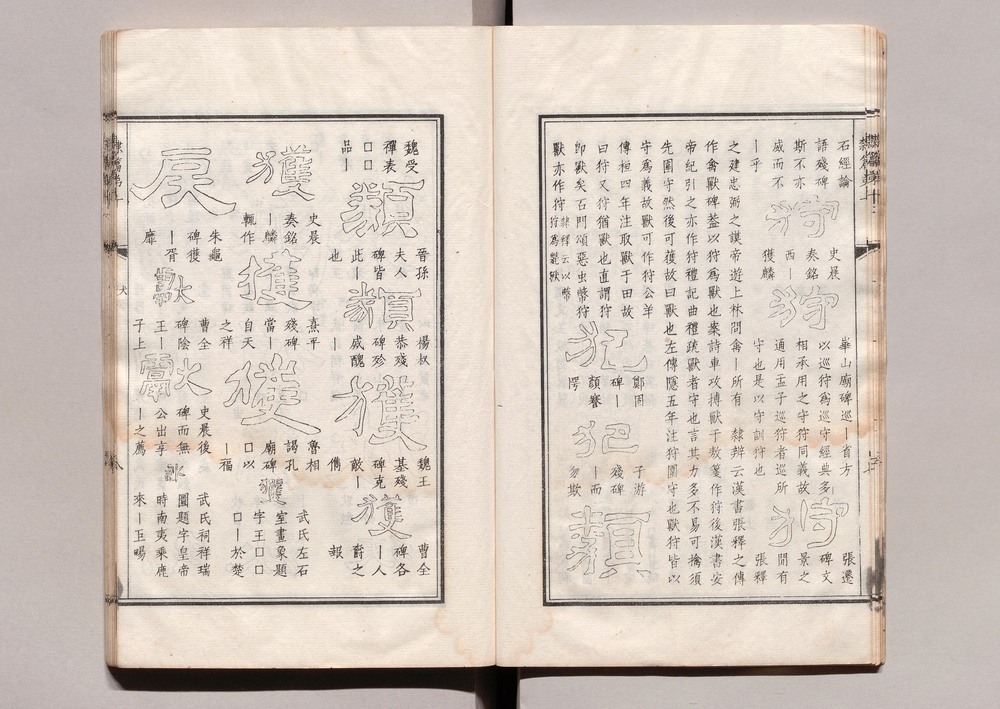 石經論
語殘碑
斯不亦
威而不
丨乎
狩
史晨
奏銘
西丨
獲麟
狩
華山廟碑巡丨省方
以巡狩爲巡守經典多
相承用之守狩同義故
通用孟子巡狩者巡所
守也是以守訓狩也
狩
張遷
碑文
景之
閒有
張釋
之建忠弼之謨帝遊上林問禽丨所有 隸辨云漢書張釋之傳
作禽獸碑蓋以狩爲獸也案詩車攻搏獸于敖箋作狩後漢書安
帝紀引之亦作狩禮記曲禮疏獸者守也言其力多不易可擒須
先圍守然後可獲故曰獸也左傳隱五年注狩圍守也獸狩皆以
守爲義故獸可作狩公羊
傳桓四年注取獸于田故
曰狩又狩猶獸也直謂狩
卽獸矣石門頌惡虫幣狩
獸亦作狩
隸釋云以幣
狩爲獘獸
犯
鄭固
碑丨
顏謇
愕
犯
子游
殘碑
丨而
勿欺
類
魏受
禪表
□□
品丨
類
晉孫
夫人
碑皆
此丨
也
類
楊叔
恭殘
碑珍
威醜
丨
獲
魏王
基殘
碑克
敵丨
儁
獲
曹全
碑各
丨人
爵之
報
獲
史晨
奏銘
丨麟
輒作
獲
熹平
殘碑
當丨
自天
之祥
獲
魯相
謁孔
廟碑
□以
丨福
獲
武氏左石
室畫象題
字王□□
□丨於楚
戾
朱龜
碑獲
丨胥
靡
獻
曹全
碑陰
王丨
子上
獻
史晨後
碑而無
公出享
丨之薦
獻
武氏祠祥瑞
圖題字皇帝
時南夷乘鹿
來丨巨暢
犬